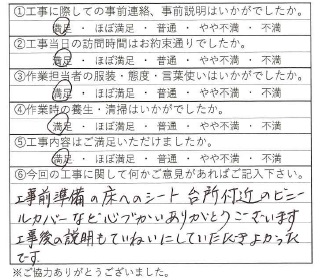 ①工事に際しての事前連絡、事前説明はいかがでしたか。
満足 ・ ほぼ満足 ・ 普通 ・ やや不満 ・ 不満
②工事当日の訪問時間はお約束通りでしたか。
満足 ・ ほぼ満足 ・ 普通 ・ やや不満 ・ 不満
③作業担当者の服装・態度・言葉使いはいかがでしたか。
満足 ・ ほぼ満足 ・ 普通 ・ やや不満 ・ 不満
④作業時の養生・清掃はいかがでしたか。
満足 ・ ほぼ満足 ・ 普通 ・ やや不満 ・ 不満
⑤工事内容はご満足いただけましたか。
満足 ・ ほぼ満足 ・ 普通 ・ やや不満 ・ 不満
⑥今回の工事に関して何かご意見があればご記入下さい。
工事前準備の床へのシート 台所付近のビニー
ルカバーなど心づかいありがとうございます
工事後の説明もていねいにしていただきよかった
です。
※ご協力ありがとうございました。